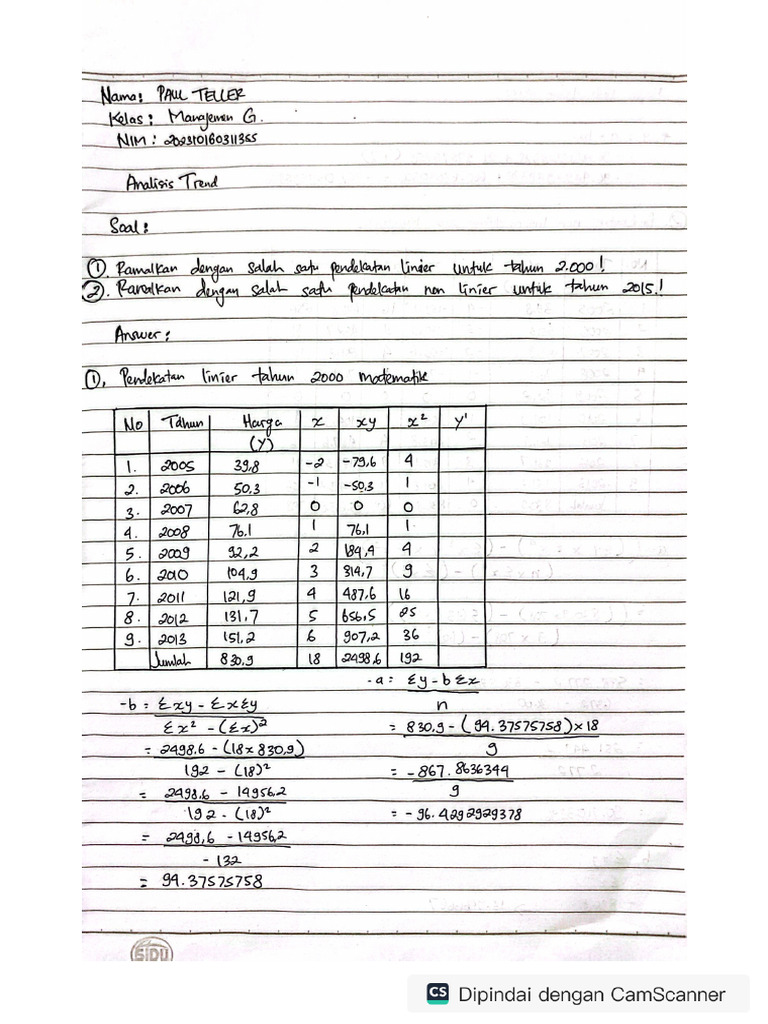 Nama: PAUL TELLER
Kelas: Manajemen G.
NIM: 202310160311355
Analisis Trend
Soal:
①. Ramalkan dengan salah satu pendekatan linier untuk tahun 2.000!
②. Ramalkan dengan salah satu pendekatan non linier untuk tahun 2015!
Answer:
①. Pendekatan linier tahun 2000 matematik
No Tahun Harga (Y) x xy x² y'
1. 2005 39,8 -2 -79,6 4
2. 2006 50,3 -1 -50,3 1
3. 2007 62,8 0 0 0
4. 2008 76,1 1 76,1 1
5. 2009 92,2 2 184,4 4
6. 2010 104,9 3 314,7 9
7. 2011 121,9 4 487,6 16
8. 2012 131,7 5 656,5 25
9. 2013 151,2 6 907,2 36
Jumlah 830,9 18 2498,6 192
-b = Σxy - ΣxΣy
Σx² - (Σx)²
= 2498,6 - (18 x 830,9)
192 - (18)²
= 2498,6 - 14956,2
192 - (18)²
= 2498,6 - 14956,2
-132
= 94.37575758
-a = Σy - bΣx
n
= 830,9 - (94.37575758) x 18
9
= -867.8636344
9
= -96.4292929378
SIDU
CS Dipindai dengan CamScanner